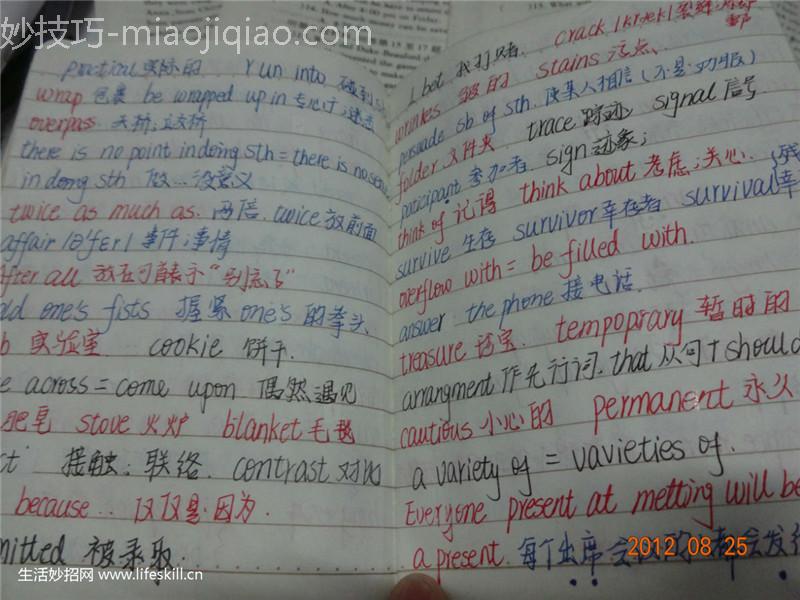 妙技巧-miaojiqiao.com
practical 实际的. run into 碰到
wrap 包裹 be wrapped up in 专心于;迷恋
overpass. 天桥;立交桥
there is no point in doing sth = there is no sense
in doing sth 做…没意义
twice as much as. 两倍. twice 放前面
affair /ə'fer/ 事件;事情
After all 放在句首表示“别忘了”
one's fists 握紧 one's 的拳头
实验室 cookie 饼干.
across = come upon 偶然遇见
肥皂 stove 火炉 blanket 毛毯
接触;联络. contrast 对比
because... 仅仅是因为.
mitted 被录取.
I bet 我打赌. crack /kræk/ 裂缝
wrinkles 皱的 stains 污点.
persuade sb of sth. 使某人相信(不是说服)
folder 文件夹. trace 踪迹 signal 信号
paticipant 参加者 sign 迹象;
think of 记得 think about 考虑;关心.
survive 生存 survivor 幸存者 survival 幸
overflow with = be filled with.
answer the phone 接电话.
treasure 珍宝. tempoprary 暂时的
arrangment 作先行词. that 从句 + should
cautious 小心的 permanent 永久
a variety of = vavieties of.
Everyone present at metting will be
a present. 每个出席会议的都会发
2012 08 25
生活妙招网 www.lifeskill.cn